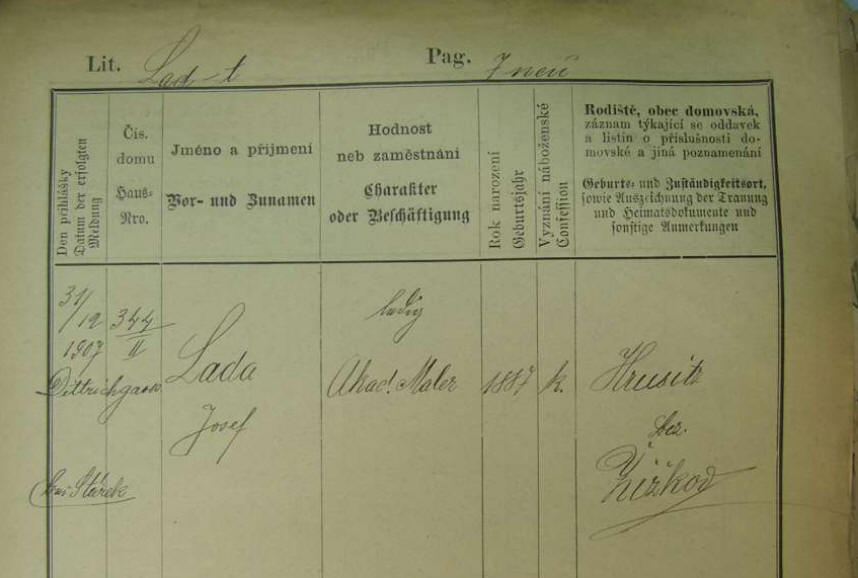 Lit. Lad-t Pag. 7 neu
Den přihlášky
Datum der erfolgten
Meldung
Čís.
domu
Haus-
Nro.
Jméno a příjmení
Vor- und Zunamen
Hodnost
neb zaměstnání
Charakter
oder Beschäftigung
Rok narození
Geburtsjahr
Vyznání náboženské
Confession
Rodiště, obec domovská,
záznam týkající se oddavek
a listin o příslušnosti do-
movské a jiná poznamenání
Geburts- und Zuständigkeitsort,
sowie Auszeichnung der Trauung
und Heimatsdokumente und
sonstige Anmerkungen
31/12
1907
344
II
Dittrichgasse
bei Stárek
Lada
Josef
ledig
Akad. Maler
1887
k.
Hrusitz
Bez.
Žižkov